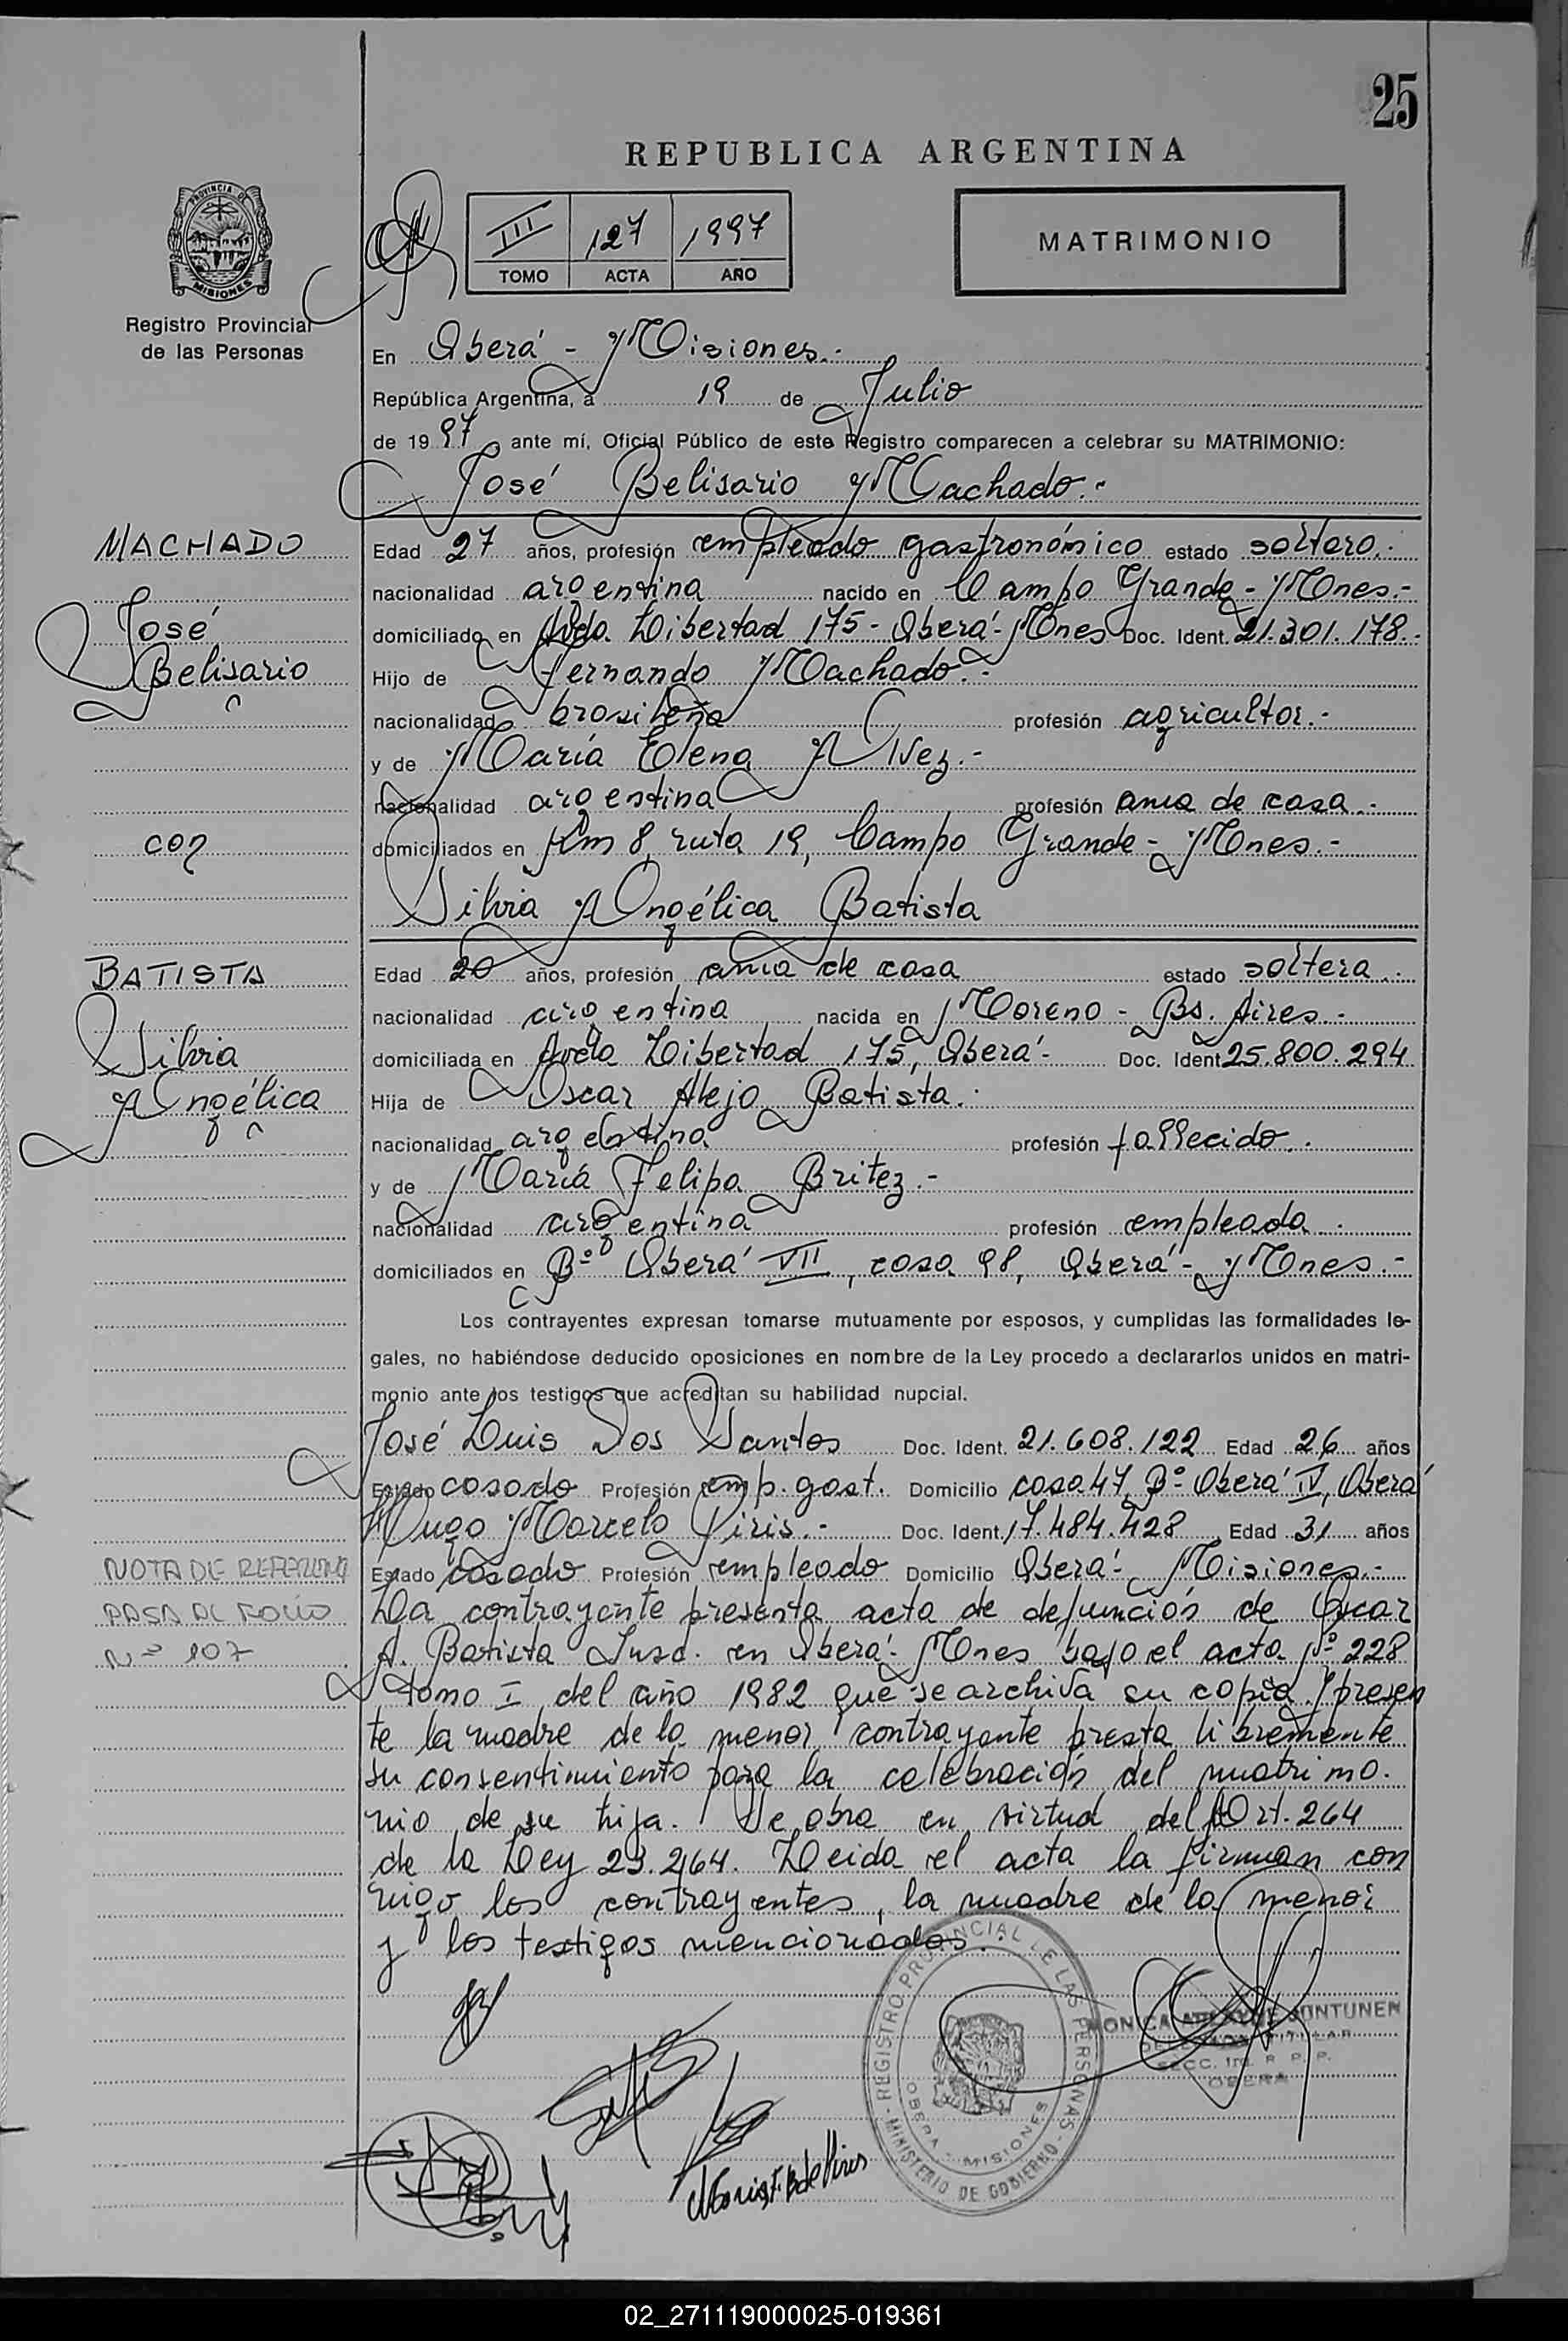 25
REPUBLICA ARGENTINA
PROVINCIA DE
MISIONES
Registro Provincial
de las Personas
III 127 1997
TOMO ACTA AÑO
MATRIMONIO
En Oberá - Misiones.-
República Argentina, a 19 de Julio
de 1997 ante mí, Oficial Público de este Registro comparecen a celebrar su MATRIMONIO:
José Belisario Machado.-
MACHADO
José
Belisario
Edad 27 años, profesión empleado gastronómico estado soltero.-
nacionalidad argentina nacido en Campo Grande - Mnes.-
domiciliado en Avda. Libertad 175 - Oberá - Mnes Doc. Ident. 21.301.178.-
Hijo de Fernando Machado.-
nacionalidad brasileña profesión agricultor.-
y de María Elena Alvez.-
nacionalidad argentina profesión ama de casa.-
con
domiciliados en Km 8, ruta 19, Campo Grande - Mnes.-
Silvia Angélica Batista
BATISTA
Silvia
Angélica
Edad 20 años, profesión ama de casa estado soltera.-
nacionalidad argentina nacida en Moreno - Bs. Aires.-
domiciliada en Avda Libertad 175, Oberá - Doc. Ident 25.800.294
Hija de Oscar Alejo Batista.-
nacionalidad argentina profesión fallecido.-
y de María Felipa Britez.-
nacionalidad argentina profesión empleada.-
domiciliados en Bº Oberá VII, casa 98, Oberá - Mnes.-
Los contrayentes expresan tomarse mutuamente por esposos, y cumplidas las formalidades le-
gales, no habiéndose deducido oposiciones en nombre de la Ley procedo a declararlos unidos en matri-
monio ante los testigos que acreditan su habilidad nupcial.
José Luis Dos Santos Doc. Ident. 21.608.122 Edad 26 años
Estado casado Profesión emp. gast. Domicilio casa 47, Bº Oberá IV, Oberá
Hugo Marcelo Piris.- Doc. Ident. 17.484.428 Edad 31 años
Estado casado Profesión empleado Domicilio Oberá - Misiones.-
NOTA DE REFERENCIA
PASA AL FOLIO
Nº 107
La contrayente presenta acta de defunción de Oscar
A. Batista Insc. en Oberá - Mnes bajo el acta Nº 228
tomo I del año 1982 que se archiva su copia. Presen
te la madre de la menor contrayente presta libremente
su consentimiento para la celebración del matrimo-
nio de su hija. Se obra en virtud del Art. 264
de la Ley 23.264. Leida el acta la firman con
migo los contrayentes, la madre de la menor
y los testigos mencionados.-
REGISTRO PROVINCIAL DE LAS PERSONAS
MINISTERIO DE GOBIERNO
OBERA - MISIONES
MONICA JUNTUNEN
TITULAR
SECC. 1ra. R. P. P.
OBERA
02_271119000025-019361